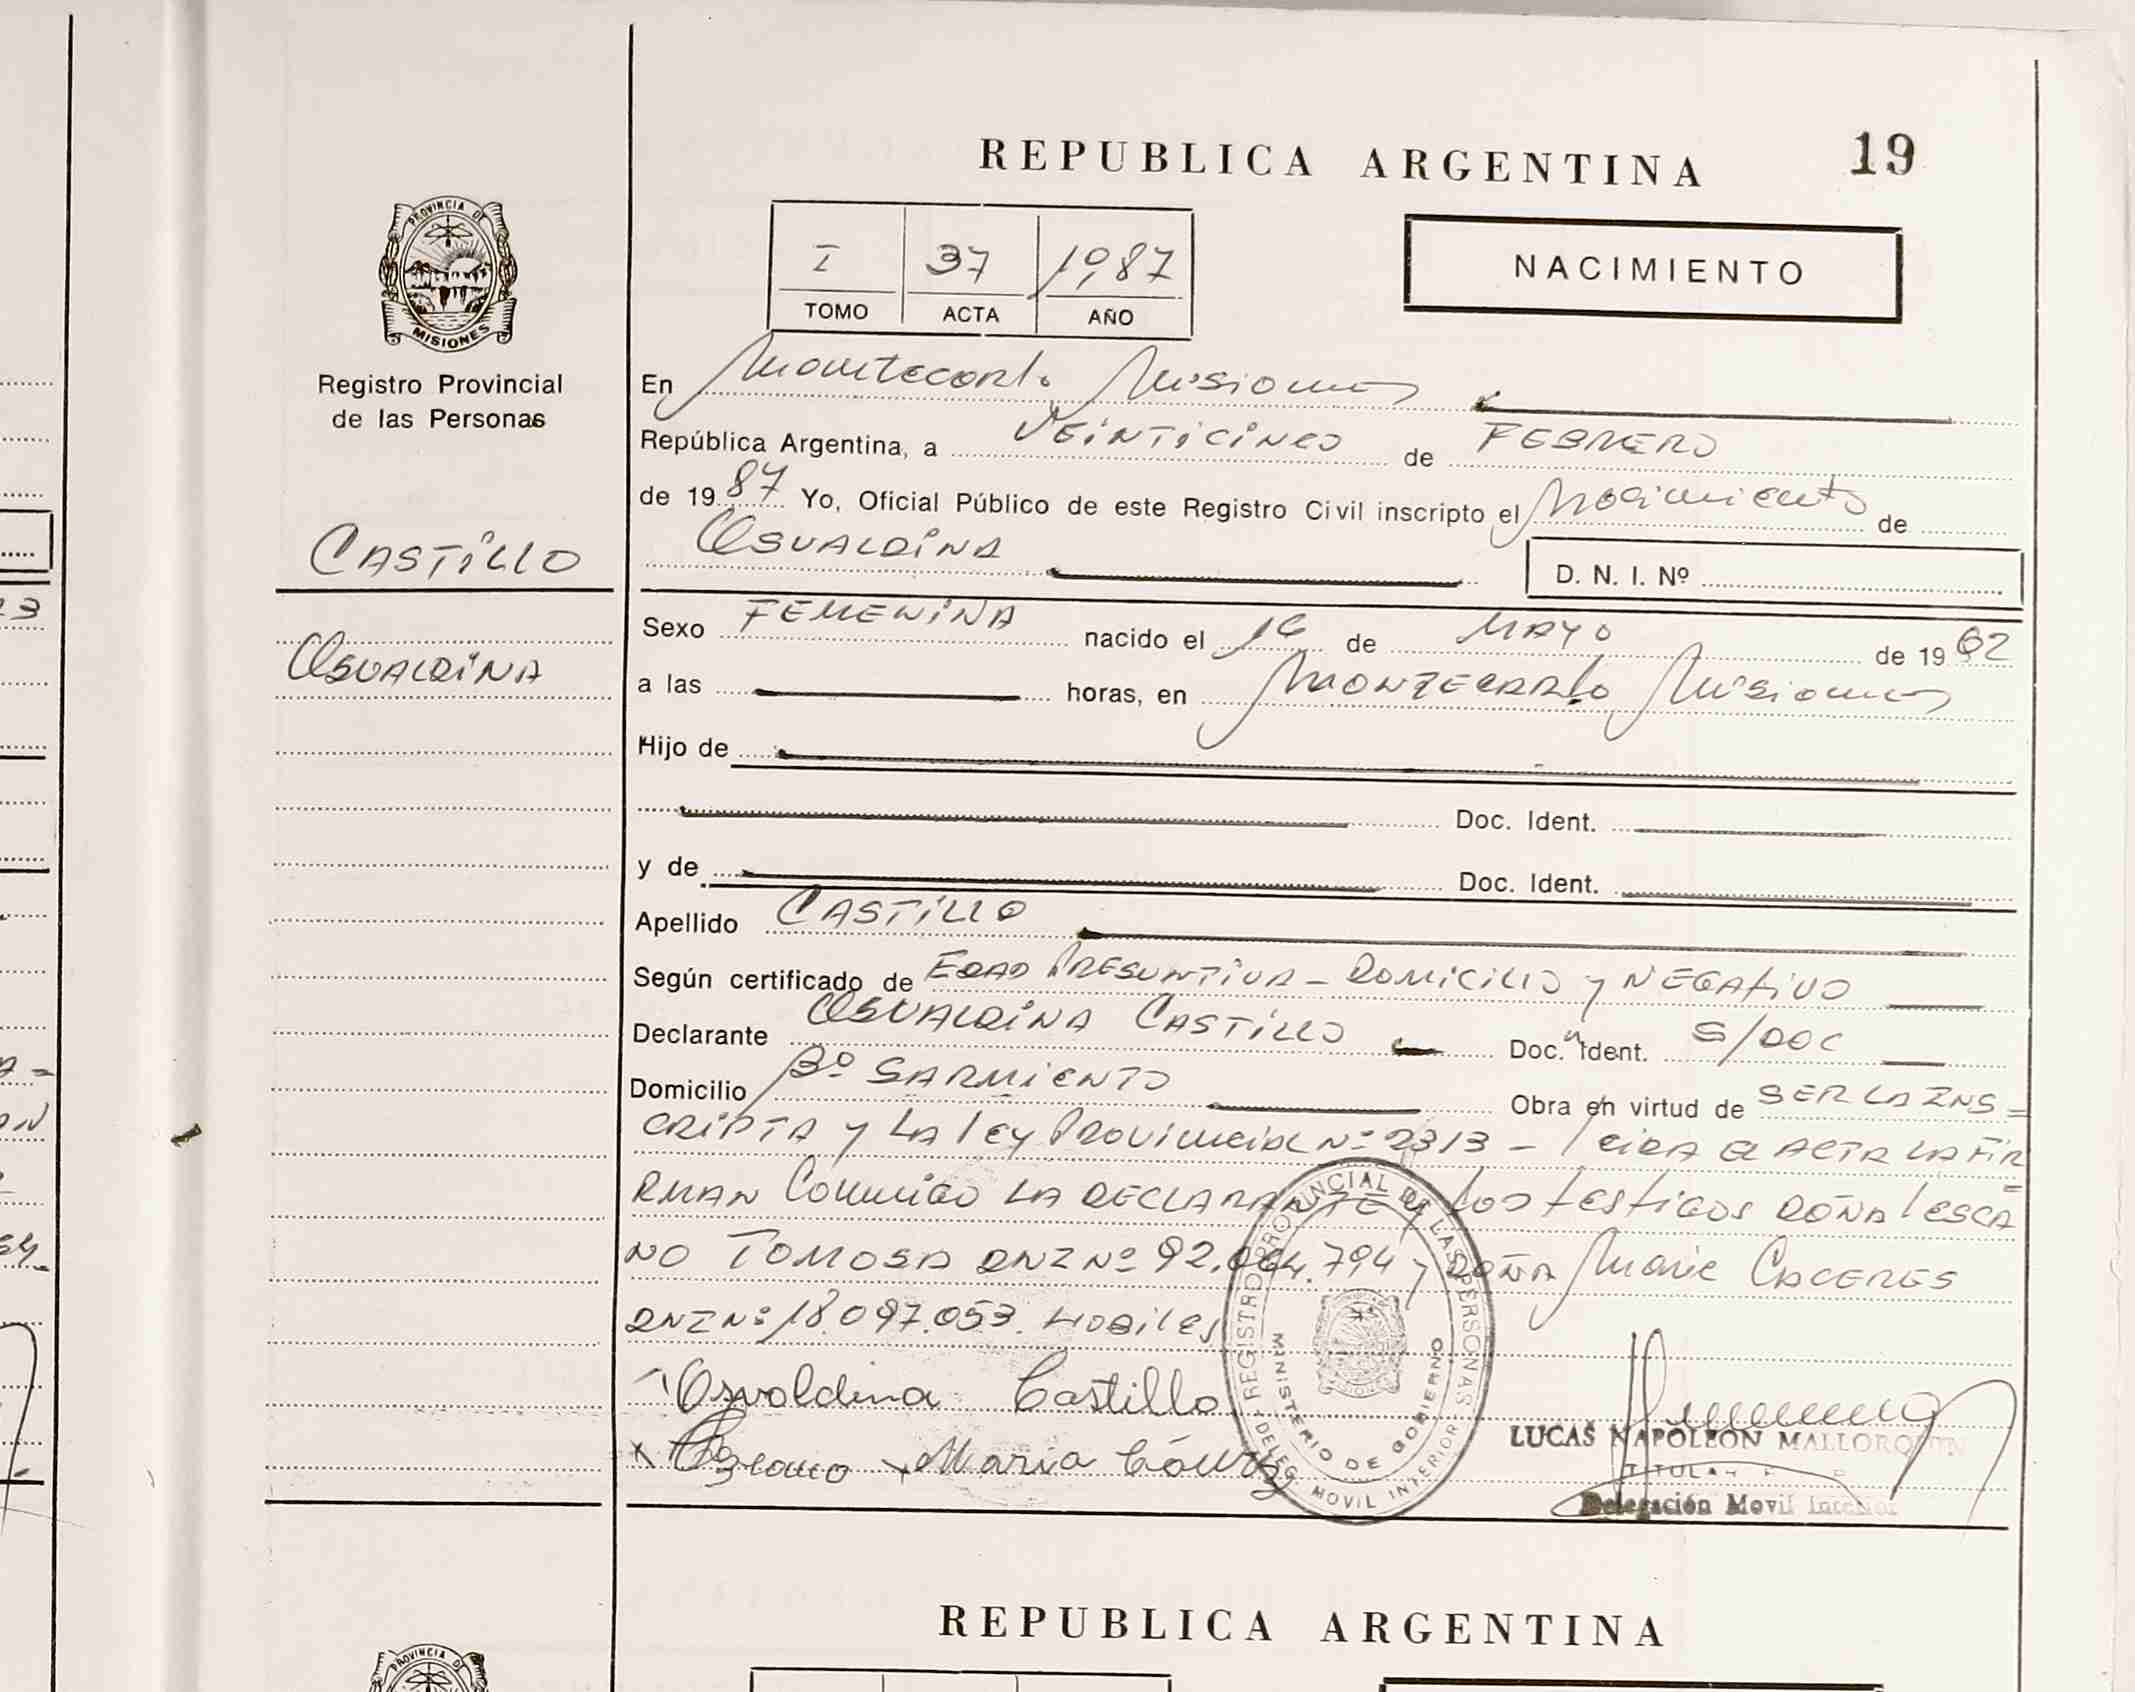 REPUBLICA ARGENTINA
19
PROVINCIA DE
MISIONES
Registro Provincial
de las Personas
I 37 1987
TOMO ACTA AÑO
NACIMIENTO
En Montecarlo Misiones
República Argentina, a VEINTICINCO de FEBRERO
de 1987 Yo, Oficial Público de este Registro Civil inscripto el Nacimiento de
OSVALDINA
D. N. I. Nº
CASTILLO
OSVALDINA
Sexo FEMENINA nacido el 16 de MAYO de 1962
a las horas, en MONTECARLO Misiones
Hijo de
Doc. Ident.
y de Doc. Ident.
Apellido CASTILLO
Según certificado de EDAD PRESUNTIVA - DOMICILIO y NEGATIVO
Declarante OSVALDINA CASTILLO Doc. Ident. S/DOC
Domicilio Bº SARMIENTO Obra en virtud de SER LA INS=
CRIPTA y LA ley Provincial Nº 2313 - leida el ACTA LA FIR
=
MAN Conmigo LA DECLARANTE y los testigos DOÑA lesca
NO TOMASA DNI Nº 92.064.794 y DOÑA Marie CACERES
DNI Nº 18.097.053. Habiles
Osvaldina Castillo
Maria
REGISTRO PROVINCIAL DE LAS PERSONAS
MINISTERIO DE GOBIERNO
DELEG. MOVIL INTERIOR
LUCAS NAPOLEON MALLORQUIN
TITULAR
Delegación Movil Interior
REPUBLICA ARGENTINA
PROVINCIA DE